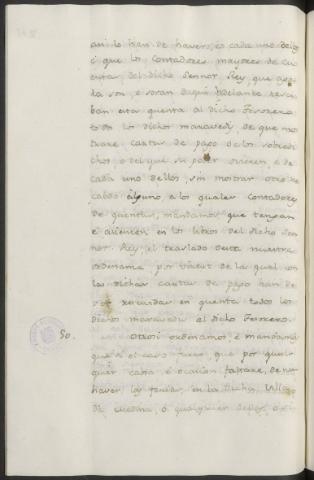 asi lo han de haver, o cada uno dellos
é que los Contadores mayores de Cu
entas del dicho Sennor Rey, que ago
ra son, é seran de aqui adelante resci
ban en cuenta al dicho Tesorero
todos los dichos maravedis, de que mos
trare cartas de pago de los sobredi
chos, o del que su poder oviere, é de
cada uno dellos, sin mostrar otro re
cabdo alguno, a los quales Contadores
de quentas, mandamos que tengan
é asienten en los libros del dicho Sen
nor Rey, el traslado desta nuestra
ordenanza por virtut de la qual con
las dichas cartas de pago han de
ser rescevidos en quenta todos los
dichos maravedis al dicho Tesorero.
50. Otrosi ordenamos, é mandamos
que si el caso fuere, que por qual
quier cabsa, ó ocasion faltare, de non
haver las ferias, en la dicha Villa
de Medina, ó qualquier dellas, o si